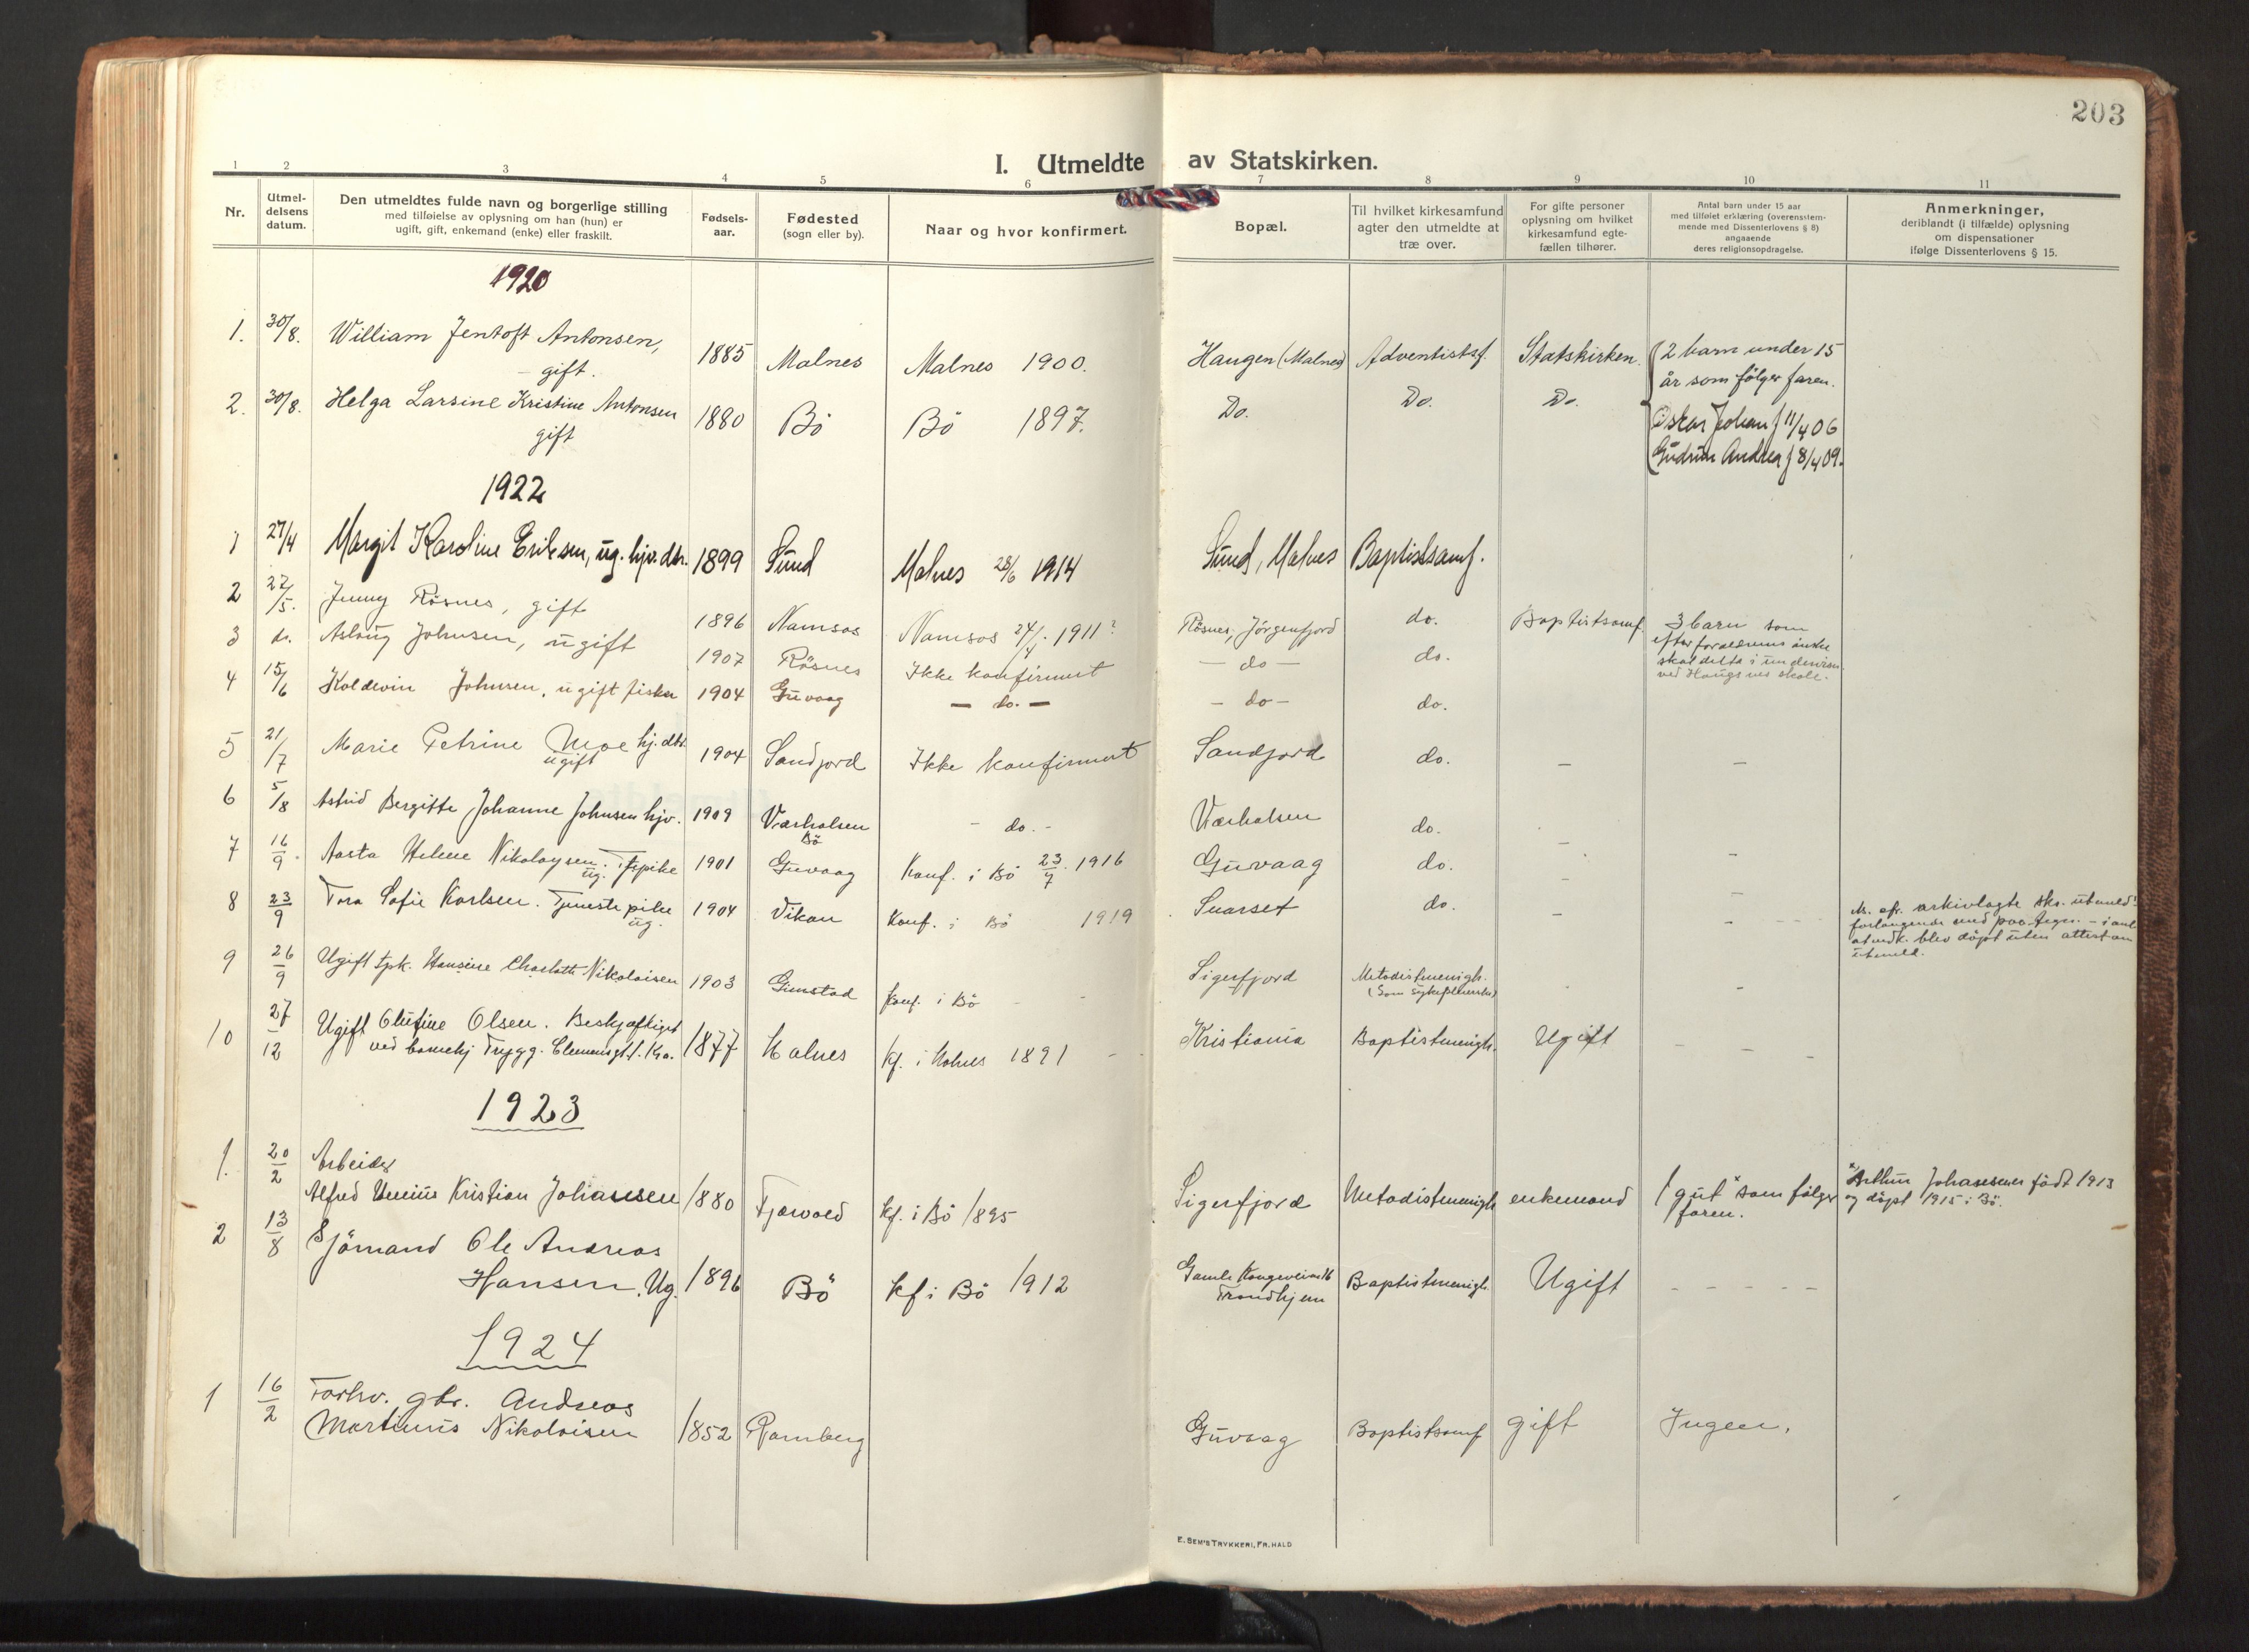 203
I. Utmeldte av Statskirken.
1 2 3 4 5 6 7 8 9 10 11
Nr.
Utmel-
delsens
datum.
Den utmeldtes fulde navn og borgerlige stilling
med tilføielse av oplysning om han (hun) er
ugift, gift, enkemand (enke) eller fraskilt.
Fødsels-
aar.
Fødested
(sogn eller by).
Naar og hvor konfirmert.
Bopæl.
Til hvilket kirkesamfund
agter den utmeldte at
træ over.
For gifte personer
oplysning om hvilket
kirkesamfund egte-
fællen tilhører.
Antal barn under 15 aar
med tilføiet erklæring (overensstem-
mende med Dissenterlovens § 8)
angaaende
deres religionsopdragelse.
Anmerkninger,
deriblandt (i tilfælde) oplysning
om dispensationer
ifølge Dissenterlovens § 15.
1920
1. 30/8. William Jentoft Antonsen, 1885 Malnes Malnes 1900. Haugen (Malnes) Adventistsf. Statskirken 2 barn under 15
gift. år som følger faren.
2. 30/8. Helga Larsine Kristine Antonsen 1880 Bö Bö 1897. Do. Do. Do. Oskar Johan f 11/4 06
gift Gudrun Andrea f 8/4 09.
1922
1 27/4 Margit Karoline Eriksen, ug. hjv. dtr. 1899 Sund Malnes 28/6 1914 Sund, Malnes Baptistsamf.
2 27/5. Jenny Rösnes, gift 1896 Namsos Namsos 24/4. 1911? Rösnes, Jörgenfjord do. Baptistsamf. 3 barn som
efter foraeldrenes önske
skal delta i
ved Haugsnes skole.
3 do. Aslaug Johnsen, ugift 1907 Rösnes Ikke konfirmert — do — do.
4 15/6 Koldevin Johnsen, ugift fisker 1904 Guvaag — do. — - do - do.
5 21/7 Marie Petrine Moe hj. dtr. 1904 Sandfjord Ikke konfirmert Sandfjord do. – –
ugift
6 5/8 Astrid Bergitte Johanne Johnsen hjv. 1909 Værholsen - do. - Værholsen do. - -
Bö
7 16/9. Aasta Helene Nikolaysen. Tjpike 1901 Guvaag Konf. i Bö 23/7. 1916 Guvaag do. - -
ug.
8 23/9 Tora Sofie Karlsen. Tjenestepike 1904 Vikan Konf. i Bö 1919 Snarset do. - - - - -
ug.
arkivlagte
blev döpt uten attest om
utmeld.
9 26/9 Ugift tpk. Hansine Charlotte Nikolaisen 1903 Gimstad Konf. i Bö - - Sigerfjord Metodistmenigh. - -
(Som sykepleierske)
10 27/12 Ugift Olufine Olsen. Beskjæftiget 1877 Malnes Kf. i Malnes 1891 - Kristiania Baptistmenigh. Ugift - - -
ved barnehj Trygg. Clemensgt. 1. Kra.
1923
1. 20/2 Arbeider
Alfred Unnius Kristian Johansen 1880 Fjærvold Kf. i Bö 1895 Sigerfjord Metodistmenigh enkemand 1 gut x som følger
faren.
x Arthur Johansesen født 1913
og döpt 1915 i Bö.
2 13/8 Sjömand Ole Andreas
Hansen. Ug. 1896 Bö Kf i Bö 1912 Gamle Kongeveien 16 Baptistmenigh. Ugift - - - - -
Trondhjem
1924
1 16/2 Forhv. gbr. Andreas
Martinus Nikolaisen 1852 Ramberg Guvaag Baptistsamf gift Ingen.
E. SEM'S TRYKKERI, FR.HALD